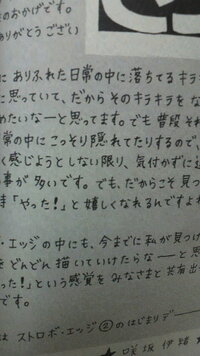 のおかげです。
ありがとうござい
に ありふれた日常の中に落ちてるキラキラ
に思っていて、だから そのキラキラを な
めたいな―と思ってます。でも 普段 それ
常の中に こっそり隠れてたりするので、
く感じようとしない限り、気付かずに過
事が多いです。でも、だからこそ 見つ
時「やった！」と 嬉しくなれるんですよね
・エッジの中にも、今までに私が見つけ
をどんどん 描いていけたらな―と思
った！」という感覚を みなさまと 共有出
です。
は ストロボ・エッジ②のはじまりデー
咲坂 伊緒